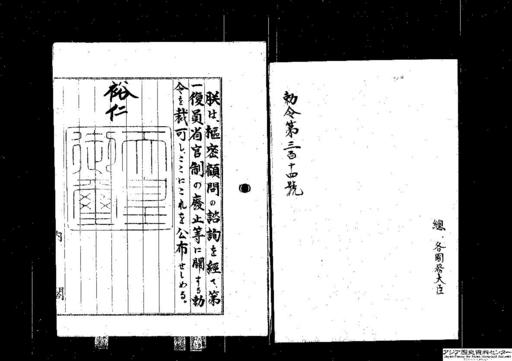 勅令第三百十四號
總
各國務大臣
朕は、樞密顧問の諮詢を經て、第
一復員省官制の廢止等に關する勅
令を裁可し、ここにこれを公布せしめる。
裕仁
天皇御璽
内閣
アジア歴史資料センター